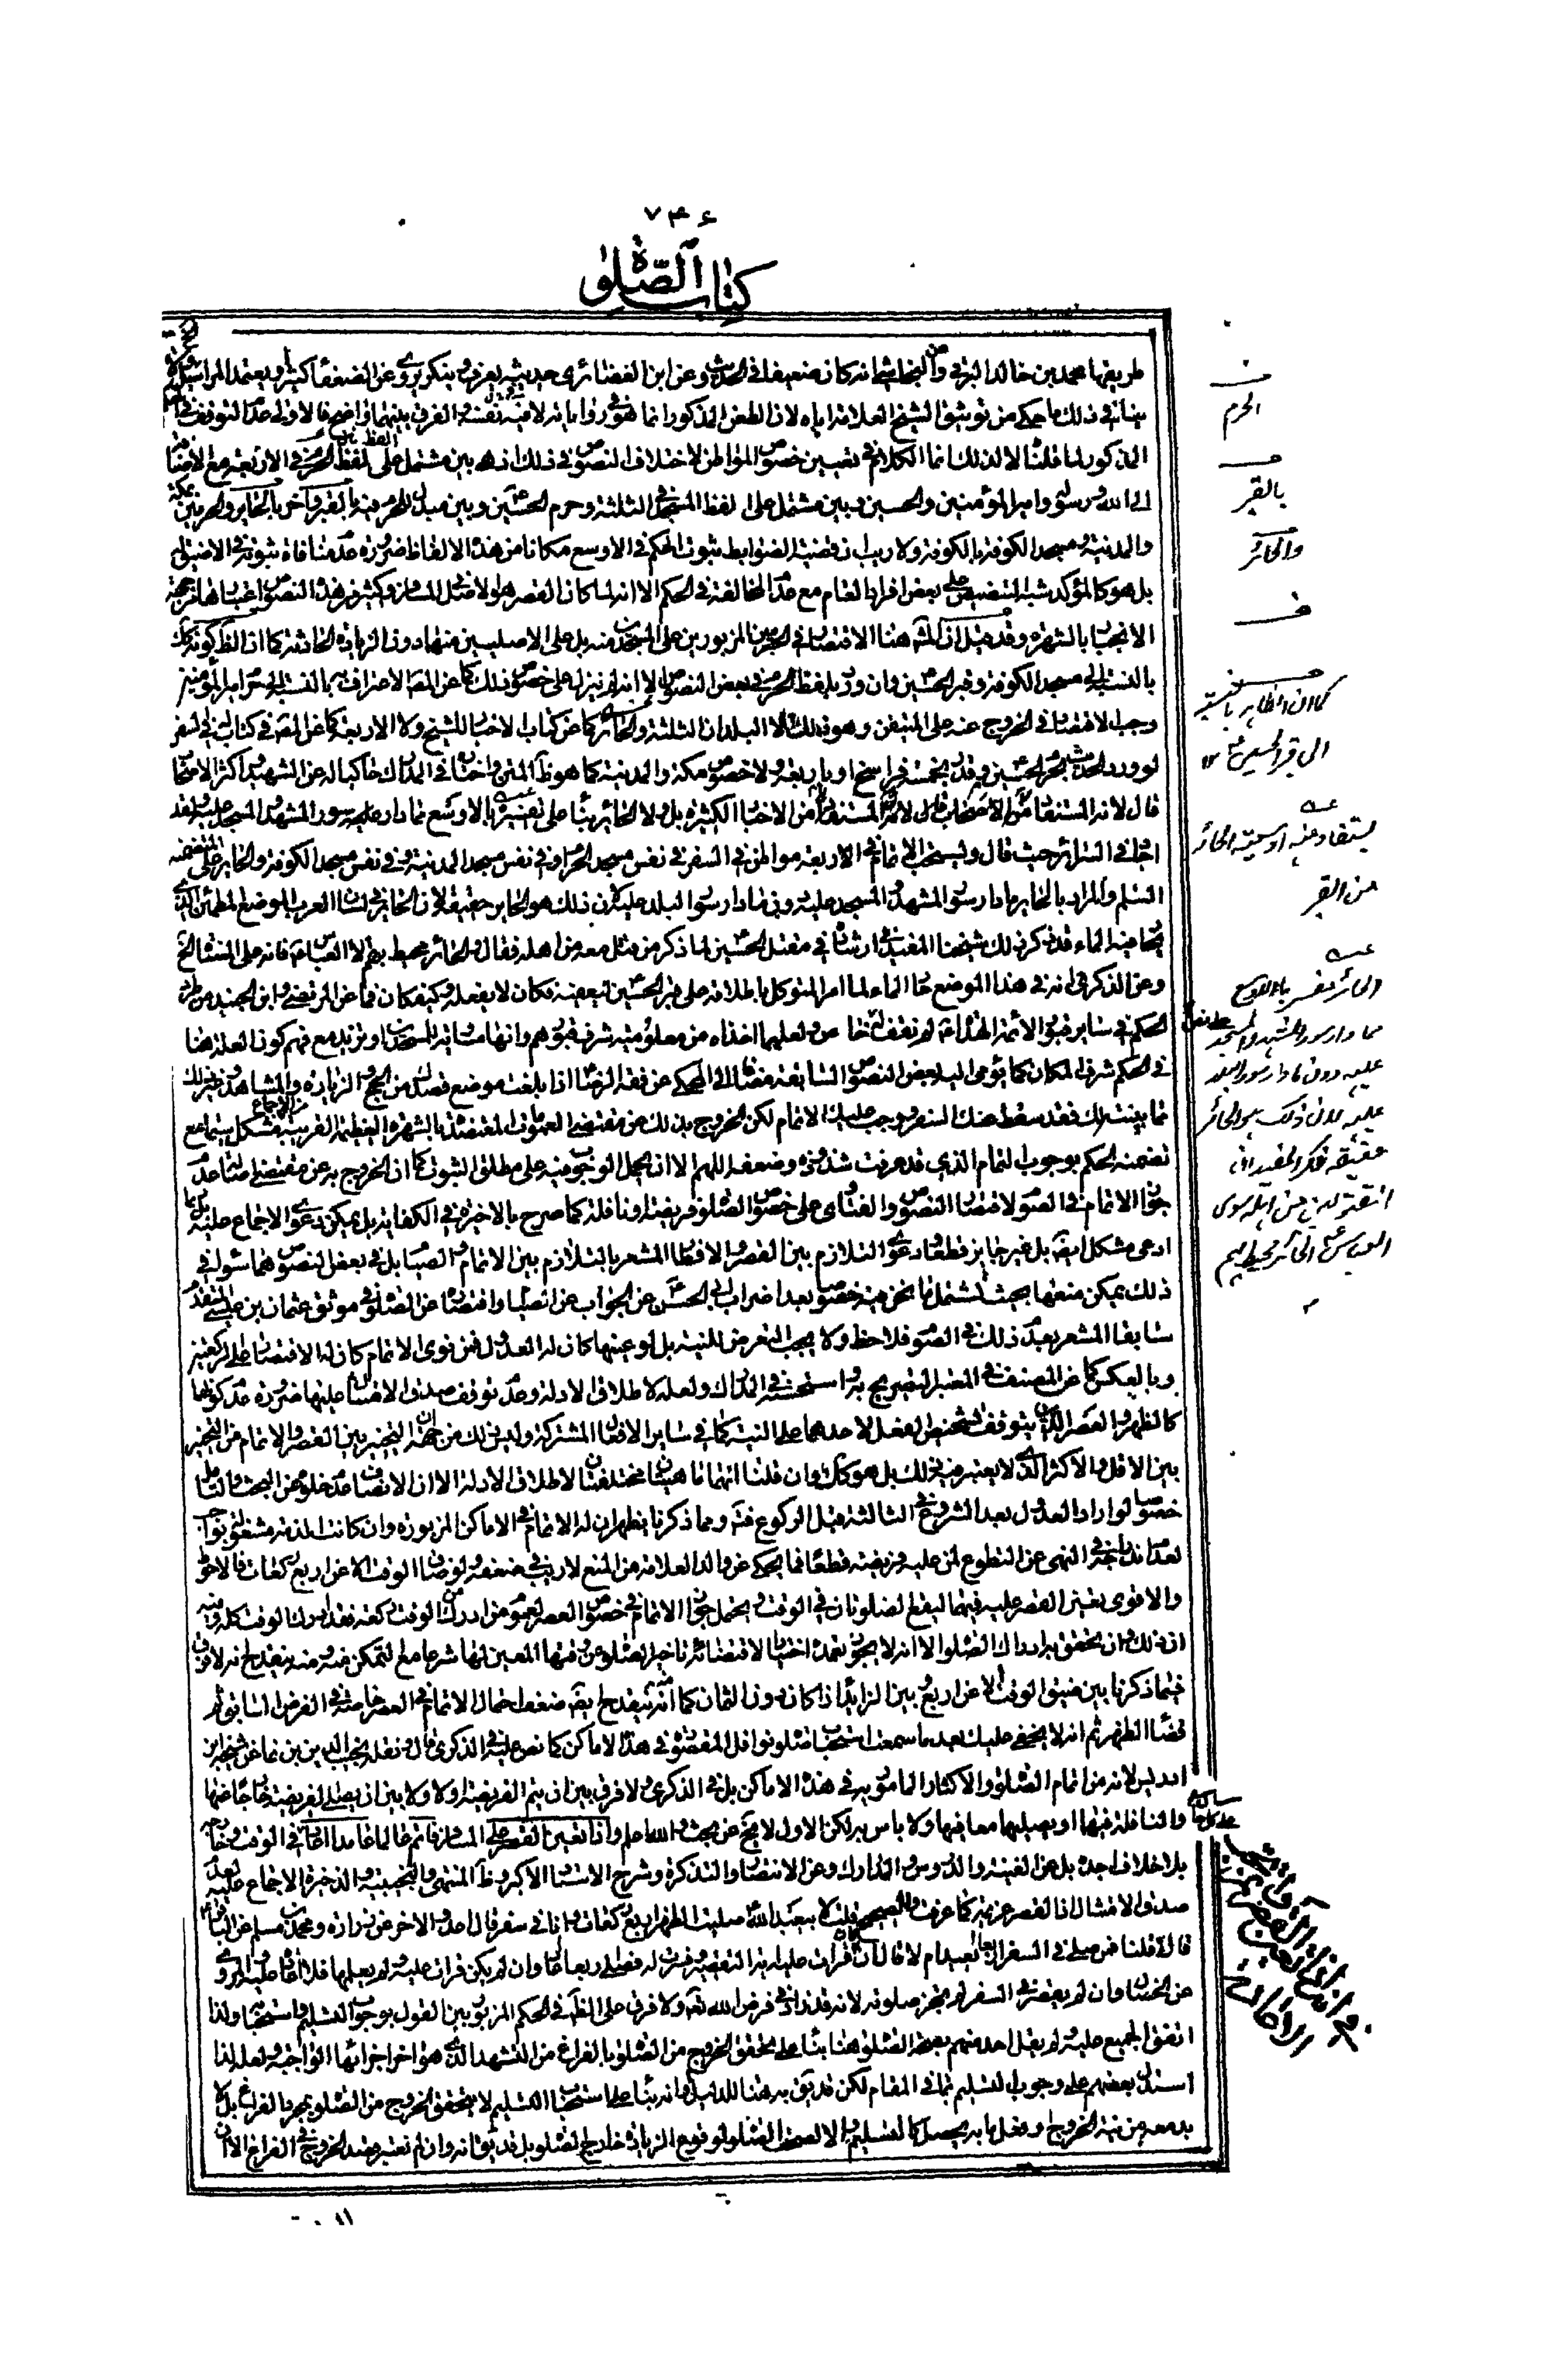 ٧٣٤
كتاب الصلوة
طريقها محمد بن خالد البرقي وعن النجاشي انه كان ضعيفا في الحديث وعن ابن الغضائري حديثه يعرف وينكر ويروي عن الضعفاء كثيرا ويعتمد المراسيل
في ذلك ما حكي من توثيق الشيخ العلامة اياه لان الطعن المذكور انما هو في رواياته لا فيه نفسه والفرق بينهما واضح فالاولى التوقف في
المذكور لما قلنا لا لذلك انما الكلام في تعيين خصوص المواطن لاختلاف النصوص في ذلك اذ هي بين مشتمل على لفظ الحرم في الاربعة مع
الى الله ورسوله وامير المؤمنين والحسين وبين مشتمل على لفظ المسجد في الثلثة وحرم الحسين وبين مبدل للحرم فيه بالقبر وآخر بالحاير والحرمين
والمدينة ومسجد الكوفة بالكوفة ولا ريب ان قضية الضوابط ثبوت الحكم في الاوسع مكانا من هذه الالفاظ ضرورة عدم منافاة ثبوته في الاضيق
بل هو كالمؤكد شبه التنصيص على بعض افراد العام مع عدم المخالفة في الحكم الا انه لما كان القصر هو الاصل للمسافر وكثير من هذه النصوص
الانجبار بالشهرة وقد قيل ان المتجه هنا الاقتصار في الحرمين المزبورين على المسجدين منه بل على الاصليين منهما دون الزيادة الحادثة كما ان الظ كونه كك
بالنسبة الى مسجد الكوفة وقبر الحسين وان ورد بلفظ الحرم في بعض النصوص الا انه لم ينزل على خصوص ذلك كما عن المص الاعتراف به بالنسبة الى حرم امير المؤمنين
وجب الاقتصار في الخروج عنه على المتيقن وهو ذلك لا البلدان الثلثة والحائر كما عن كتاب الاخبار للشيخ ولا الاربعة كما عن المص في كتاب له في السفر
لورود الحديث بحرم الحسين وقدر بخمسة فراسخ او باربعة ولا خصوص مكة والمدينة كما هو ظ المتن واختاره في المدارك حاكيا له عن الشهيد واكثر الاصحاب
قال لانه المستفاد من الاخبار الكثيرة بل ولا الحائر بناء على تفسيره بالاوسع مما دار عليه سور المشهد والمسجد عليه
في السرائر حيث قال ويستحب الاتمام في الاربعة مواطن في السفر في نفس مسجد الحرام وفي نفس مسجد المدينة وفي نفس مسجد الكوفة والحاير على متضمنه
السلم والمراد بالحاير ما دار سور المشهد والمسجد عليه دون ما دار سور البلد عليه لان ذلك هو الحاير حقيقة لان الحاير في لسان العرب الموضع المطمئن الذي
يحار فيه الماء قد ذكر ذلك شيخنا المفيد في ارشاده في مقتل الحسين لما ذكر من قتل معه من اهله فقال والحائر محيط بهم الا العباس فانه على المسناة
وعن الذكرى انه في هذا الموضع حار الماء لما امر المتوكل باطلاقه على قبر الحسين ليعفيه فكان لا يبلغه وكيف كان فما عن المرتضى وابن الجنيد من طرد
الحكم في ساير قبور الائمة الهداة لم نقف له على مأخذ ولعلهما اخذاه من معلومية شرف قبورهم وانها مساوية للمسجدين او تزيد مع فهم كون العلة هنا
في الحكم شرف المكان كما يومي اليه بعض النصوص السابقة مضافا الى المحكي عن فقه الرضا اذا بلغت موضع قصدك من الحج والزيارة والمشاهد وغير ذلك
مما بينته لك فقد سقط عنك السفر ووجب عليك الاتمام لكن الخروج بذلك عن مقتضى العمومات المعتضدة بالشهرة العظيمة القريبة من الاجماع مشكل سيما مع
تضمنه الحكم بوجوب التمام الذي قد عرفت شذوذه وضعفه اللهم الا ان يحمل الوجوب فيه على مطلق الثبوت كما ان الخروج به عن مقتضى اصالة عدم
جواز الاتمام في الصوم لاقتصار النصوص والفتاوى على خصوص الصلوة فريضة ونافلة كما صرح بالاخيرة في الكفاية بل يمكن دعوى الاجماع عليه
ادعي مشكل ايضا بل غير جايز قطعا ودعوى التلازم بين القصر والافطار المشعر بالتلازم بين الاتمام والصيام بل في بعض النصوص هما سواء في
ذلك يمكن منعها بحيث تشمل ما نحن فيه خصوصا بعد اضراب ابي الحسن عن الجواب عن الصيام واقتصاره عن الصلوة في موثق عثمان بن عيسى المتقدم
سابقا المشعر بعدم ذلك في الصوم فلاحظ ولا يجب التعرض للنية بل لو عينها كان له العدول فمن نوى الاتمام كان له الاقتصار على الركعتين
وبالعكس كما عن المصنف في المعتبر التصريح به واستحسنه في المدارك ولعله لاطلاق الادلة وعدم توقف صدق الامتثال عليها ضرورة عدم كونهما
كالظهر والعصر الذين يتوقف تشخيص الفعل لاحدهما على النية كما في ساير الافعال المشتركة وليس ذلك من جهة ان التخيير بين القصر والاتمام من التخيير
بين الاقل والاكثر الذي لا يعتبر فيه ذلك بل هو كك وان قلنا انهما ماهيتان مختلفتان لاطلاق الادلة الا ان الانصاف عدم خلوه عن البحث والتأمل
خصوصا لو اراد العدول بعد الشروع في الثالثة قبل الركوع فيه ومما ذكرنا يظهر ان له الاتمام في الاماكن المزبورة وان كانت الذمة مشغولة بواجب
لعدم اندراجه في النهي عن التطوع لمن عليه فريضة قطعا فما يحكى عن والد العلامة من المنع لا ريب في ضعفه ولو ضاق الوقت الا عن اربع ركعات فالاحوط
والاقوى تعيين القصر عليه فيهما ليقع الصلوتان في الوقت ويحتمل جواز الاتمام في خصوص العصر لعموم من ادرك من الوقت ركعة فقد ادرك الوقت كله وفيه
ان ذلك وان تحقق به ادراك الصلوة الا انه لا يجوز تعمده اختيارا لاقتضائه تاخير الصلوة عن وقتها المعين لها شرعا مع التمكن منه ومنه ينقدح انه لا فرق
فيما ذكرنا بين ضيق الوقت الا عن اربع وبين الزايد اذا كان دون الثمان كما انه ينقدح ايضا ضعف احتمال الاتمام في العصر خاصة في الفرض السابق ثم
قضاء الظهر ثم انه لا يخفى عليك بعد ما سمعت استحباب صلوة نوافل المقصورة في هذه الاماكن كما نص عليه في الذكرى قال ونقله نجيب الدين بن نما عن شيخه ابن
ادريس لانه من اتمام الصلوة والاكثار المامور به في هذه الاماكن بل في الذكرى لا فرق بين ان يتم الفريضة اولا ولا بين ان يصلي الفريضة خارجا عنها
والنافلة فيها او يصليهما معا فيها ولا باس به لكن الاول لا يخ عن بحث والله اعلم واذا تعين القصر على المسافر فاتم عالما عامدا اعاد في الوقت وخارجه
بلا خلاف اجده بل عن الغنية والدروس والمدارك وعن الانتصار والتذكرة وشرح الاستاد الاكبر وظ المنتهى والنجيبية والذخيرة الاجماع عليه لعدم
صدق الامتثال اذ القصر عزيمة كما عرفت وللصحيح قلت لابيعبد الله صليت الظهر اربع ركعات وانا في سفر قال اعد والآخر عن زرارة ومحمد بن مسلم عن الباقر
قالا قلنا فمن صلى في السفر اربعا ايعيد ام لا قال ان كان قرأت عليه اية التقصير وفسرت له فصلى اربعا اعاد وان لم يكن قرأت عليه ولم يعلمها فلا اعادة عليه والمروي
عن الخصال وان لم يقصر في السفر لم تجز صلوته لانه قد زاد في فرض الله تعه ولا فرق على الظ في الحكم المزبور بين القول بوجوب التسليم واستحبابه ولذا
اتفق الجميع عليه ولم يقل احد منهم بصحة الصلوة هنا بناء على تحقق الخروج من الصلوة بالفراغ من التشهد الذي هو اخر اجزائها الواجبة ولعله لذا
استدل بعضهم على وجوب التسليم بما في المقام لكن قد يق به هنا للدليل او انه بناء على استحباب التسليم لا يتحقق الخروج من الصلوة بمجرد الفراغ بل لا
بد معه من نية الخروج او فعل ما به يحصل كالتسليم والا لصحت الصلوة لوقوع الزيادة خارج الصلوة بل قد يق انه وان لم نعتبر قصد الخروج في الفراغ الا ان
الحرم
بالقبر
والحائر
كما ان الظاهر بالنسبة
الى قبر الحسين
يستفاد منه اوسعية الحائر
من القبر
والحائر مفسر بالاوسع
مما دار سور المشهد والمسجد
عليه دون ما دار سور البلد
عليه لان ذلك هو الحائر
حقيقة ذكر المفيد
العباس الحائر محيط بهم